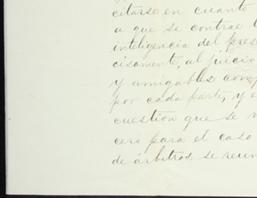 citarse en cuanto
a que se contrae
inteligencia del pres
cisamente, al juicio
y amigables comp
por cada parte, y e
cuestion que se
cero para el caso
de árbitros se reun